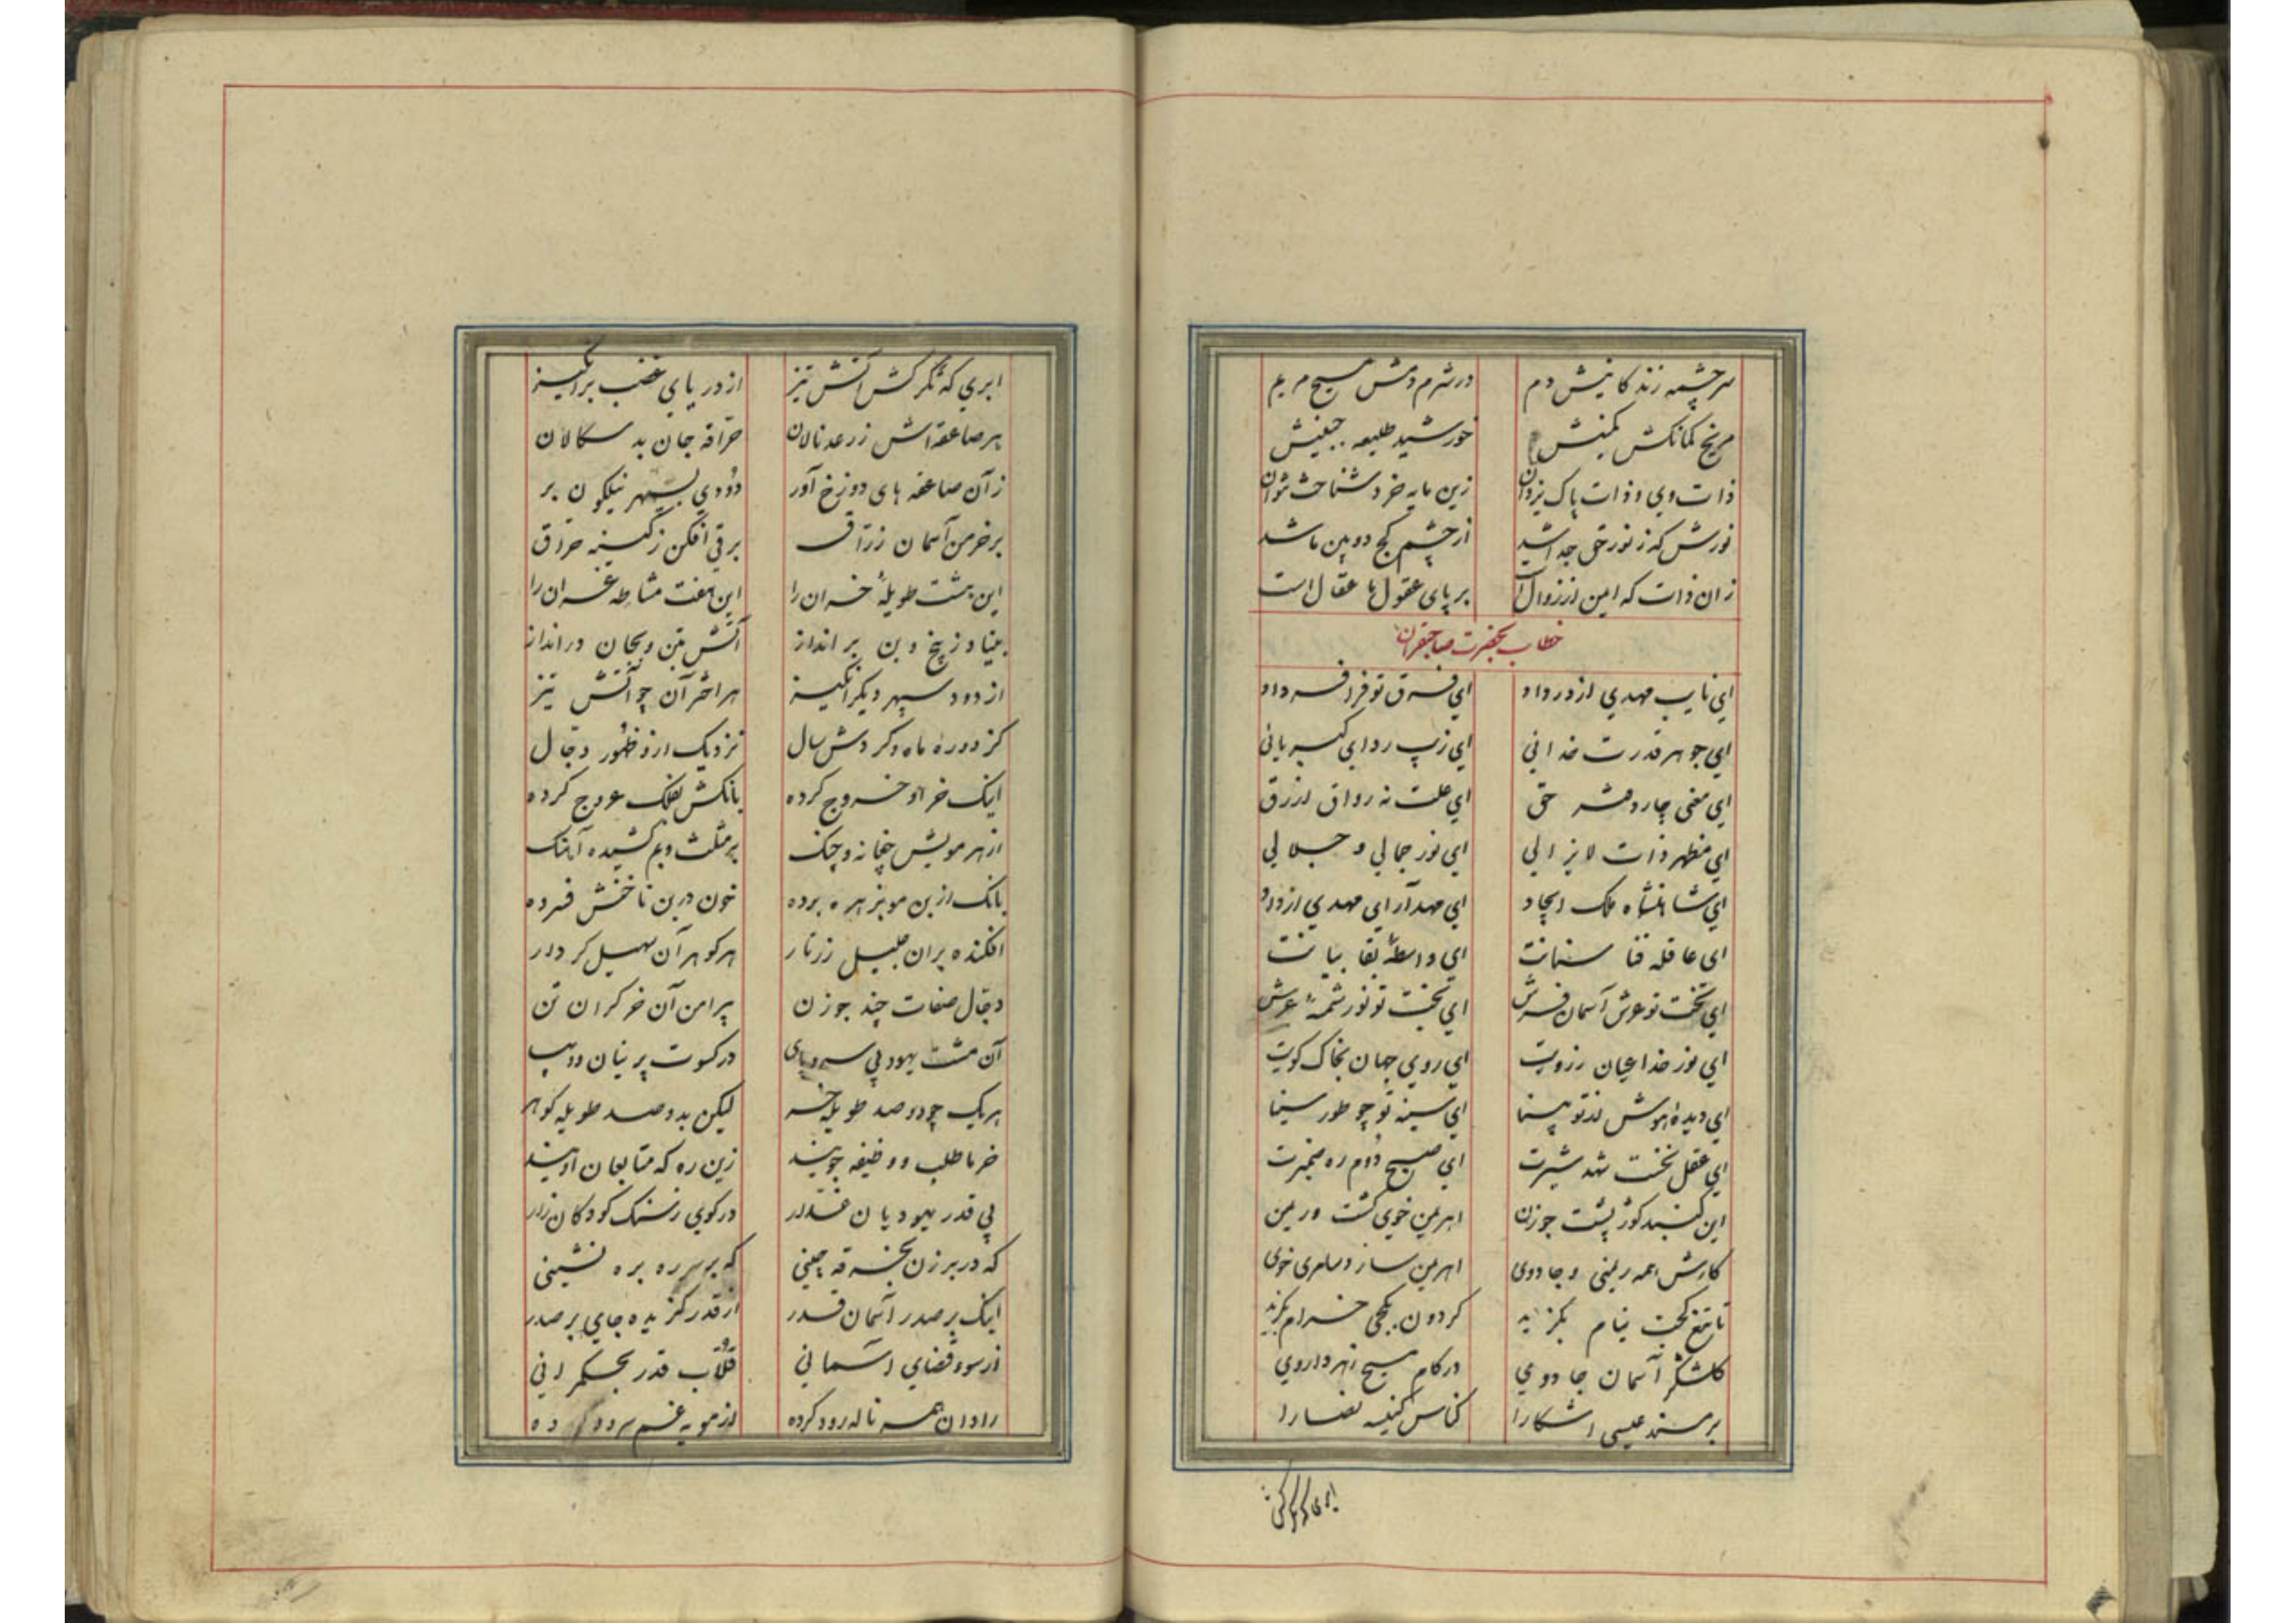 سرچشمه زندکانیش دم درشرم دمش مسیح مریم
مریخ کمانکش کمینش خورشید طلیعه جبینش
ذات وی و ذات پاک یزدان زین مایه خرد شناخت نتوان
نورش که ز نور حق جدا شد از چشم کج دوبین ما شد
زان ذات که ایمن از زوال است بر پای عقول ما عقال است
خطاب بحضرت صاحبقران
ای نایب مهدی از در داد ای فرق تو فر افسر داد
ای جوهر قدرت خدائی ای زیب ردای کبریائی
ای معنی چار دفتر حق ای علت نه رواق ازرق
ای مظهر ذات لایزالی ای نور جمالی و جلالی
ای شاهنشاه ملک ایجاد ای مهد آرای مهدی از داد
ای عاقله فنا سنانت ای واسطهٔ بقا بیانت
ای تخت تو عرش آسمان فرش ای بخت تو نور شمهٔ عرش
ای نور خدا عیان ز رویت ای روی جهان بخاک کویت
ای دیدهٔ هوش از تو بینا ای سینه تو چو طور سینا
ای عقل نخست شد مشیرت ای صبح دوم ره ضمیرت
این کنبد کوژ پشت جوزن اهریمن خوی کشت و ریمن
کارش همه ریمنی و جادوی اهریمن ساز و سامری خوی
تا تیغ کجت نیام بکزید کردون بکجی خرام بکزید
آسمان جادوی در کام مسیح زهر داروی
بر مسند عیسی آشکارا کناس کنیسه نصارا
ابری که تکرکش آتش تیز از دریای غضب برانکیز
هر صاعقه اش ز رعد نالان حراقه جان بد سکالان
زآن صاعقه های دوزخ آور دودی بسپهر نیلکون بر
بر خرمن آسمان زراق برقی افکن ز کینه حراق
این هشت طویلهٔ خران را این هفت مشاطه غران را
بنیاد ز بیخ و بن بر انداز آتش بتن و بجان در انداز
از دود سپهر دیکر انکیز هر اختر آن چو آتش تیز
کز دورهٔ ماه و کردش سال نزدیک ازو ظهور دجال
اینک خر او خروج کرده بانکش بفلک عروج کرده
از هر مویش چغانه و چنک بر مثلث و بم کشیده آهنک
بانک از بن مو بزهره برده خون در بن ناخنش فسرده
افکنده بر آن جلیل زرتار هر کوهر آن سهیل کردار
دجال صفات چند جوزن پیرامن آن خر کران تن
آن مشت یهود بی سر و پای در کسوت پرنیان و دیب
هریک چو دو صد طویله خر لیکن بدو صد طویله کوهر
خر ما طلب و وظیفه جویند زین ره که متابعان اویند
بی قدر یهودیان غدار در کوی ز سنک کودکان زار
که در برزن بخرقه چینی که بر سر ره بره نشینی
اینک بر صدر آسمان قدر از قدر کزیده جای بر صدر
از سوء قضای آسمانی قلاب قدر بحکمرانی
رادان همه ناله رود کرده از مویه غم سرود کرده